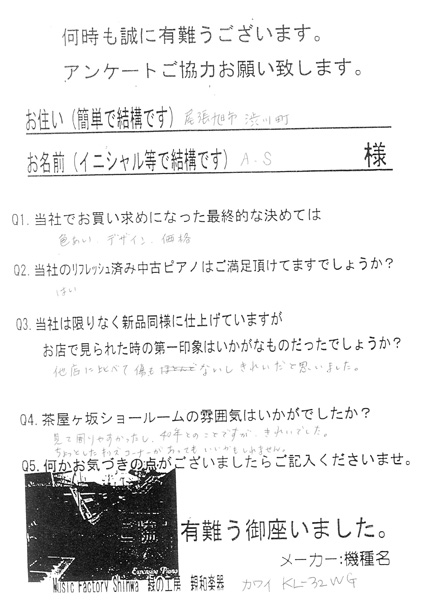 何時も誠に有難うございます。
アンケートご協力お願い致します。
お住い（簡単で結構です） 尾張旭市 渋川町
お名前（イニシャル等で結構です） A.S 様
Q1. 当社でお買い求めになった最終的な決めては
色あい、デザイン、価格
Q2. 当社のﾘﾌﾚｯｼｭ済み中古ピアノはご満足頂けてますでしょうか？
はい
Q3. 当社は限りなく新品同様に仕上げていますが
お店で見られた時の第一印象はいかがなものだったでしょうか？
他店に比べて傷もほとんどないし きれいだと思いました。
Q4. 茶屋ヶ坂ショールームの雰囲気はいかがでしたか？
見て周りやすかったし、 とのことですが、きれいでした。
ちょっとしたキッズコーナーがあってもいいかもしれません。
Q5. 何かお気づきの点がございましたらご記入くださいませ。
有難う御座いました。
Expensive Piano
メーカー:機種名
Music Factory Shinwa 親和楽器 カワイ KL-32WG